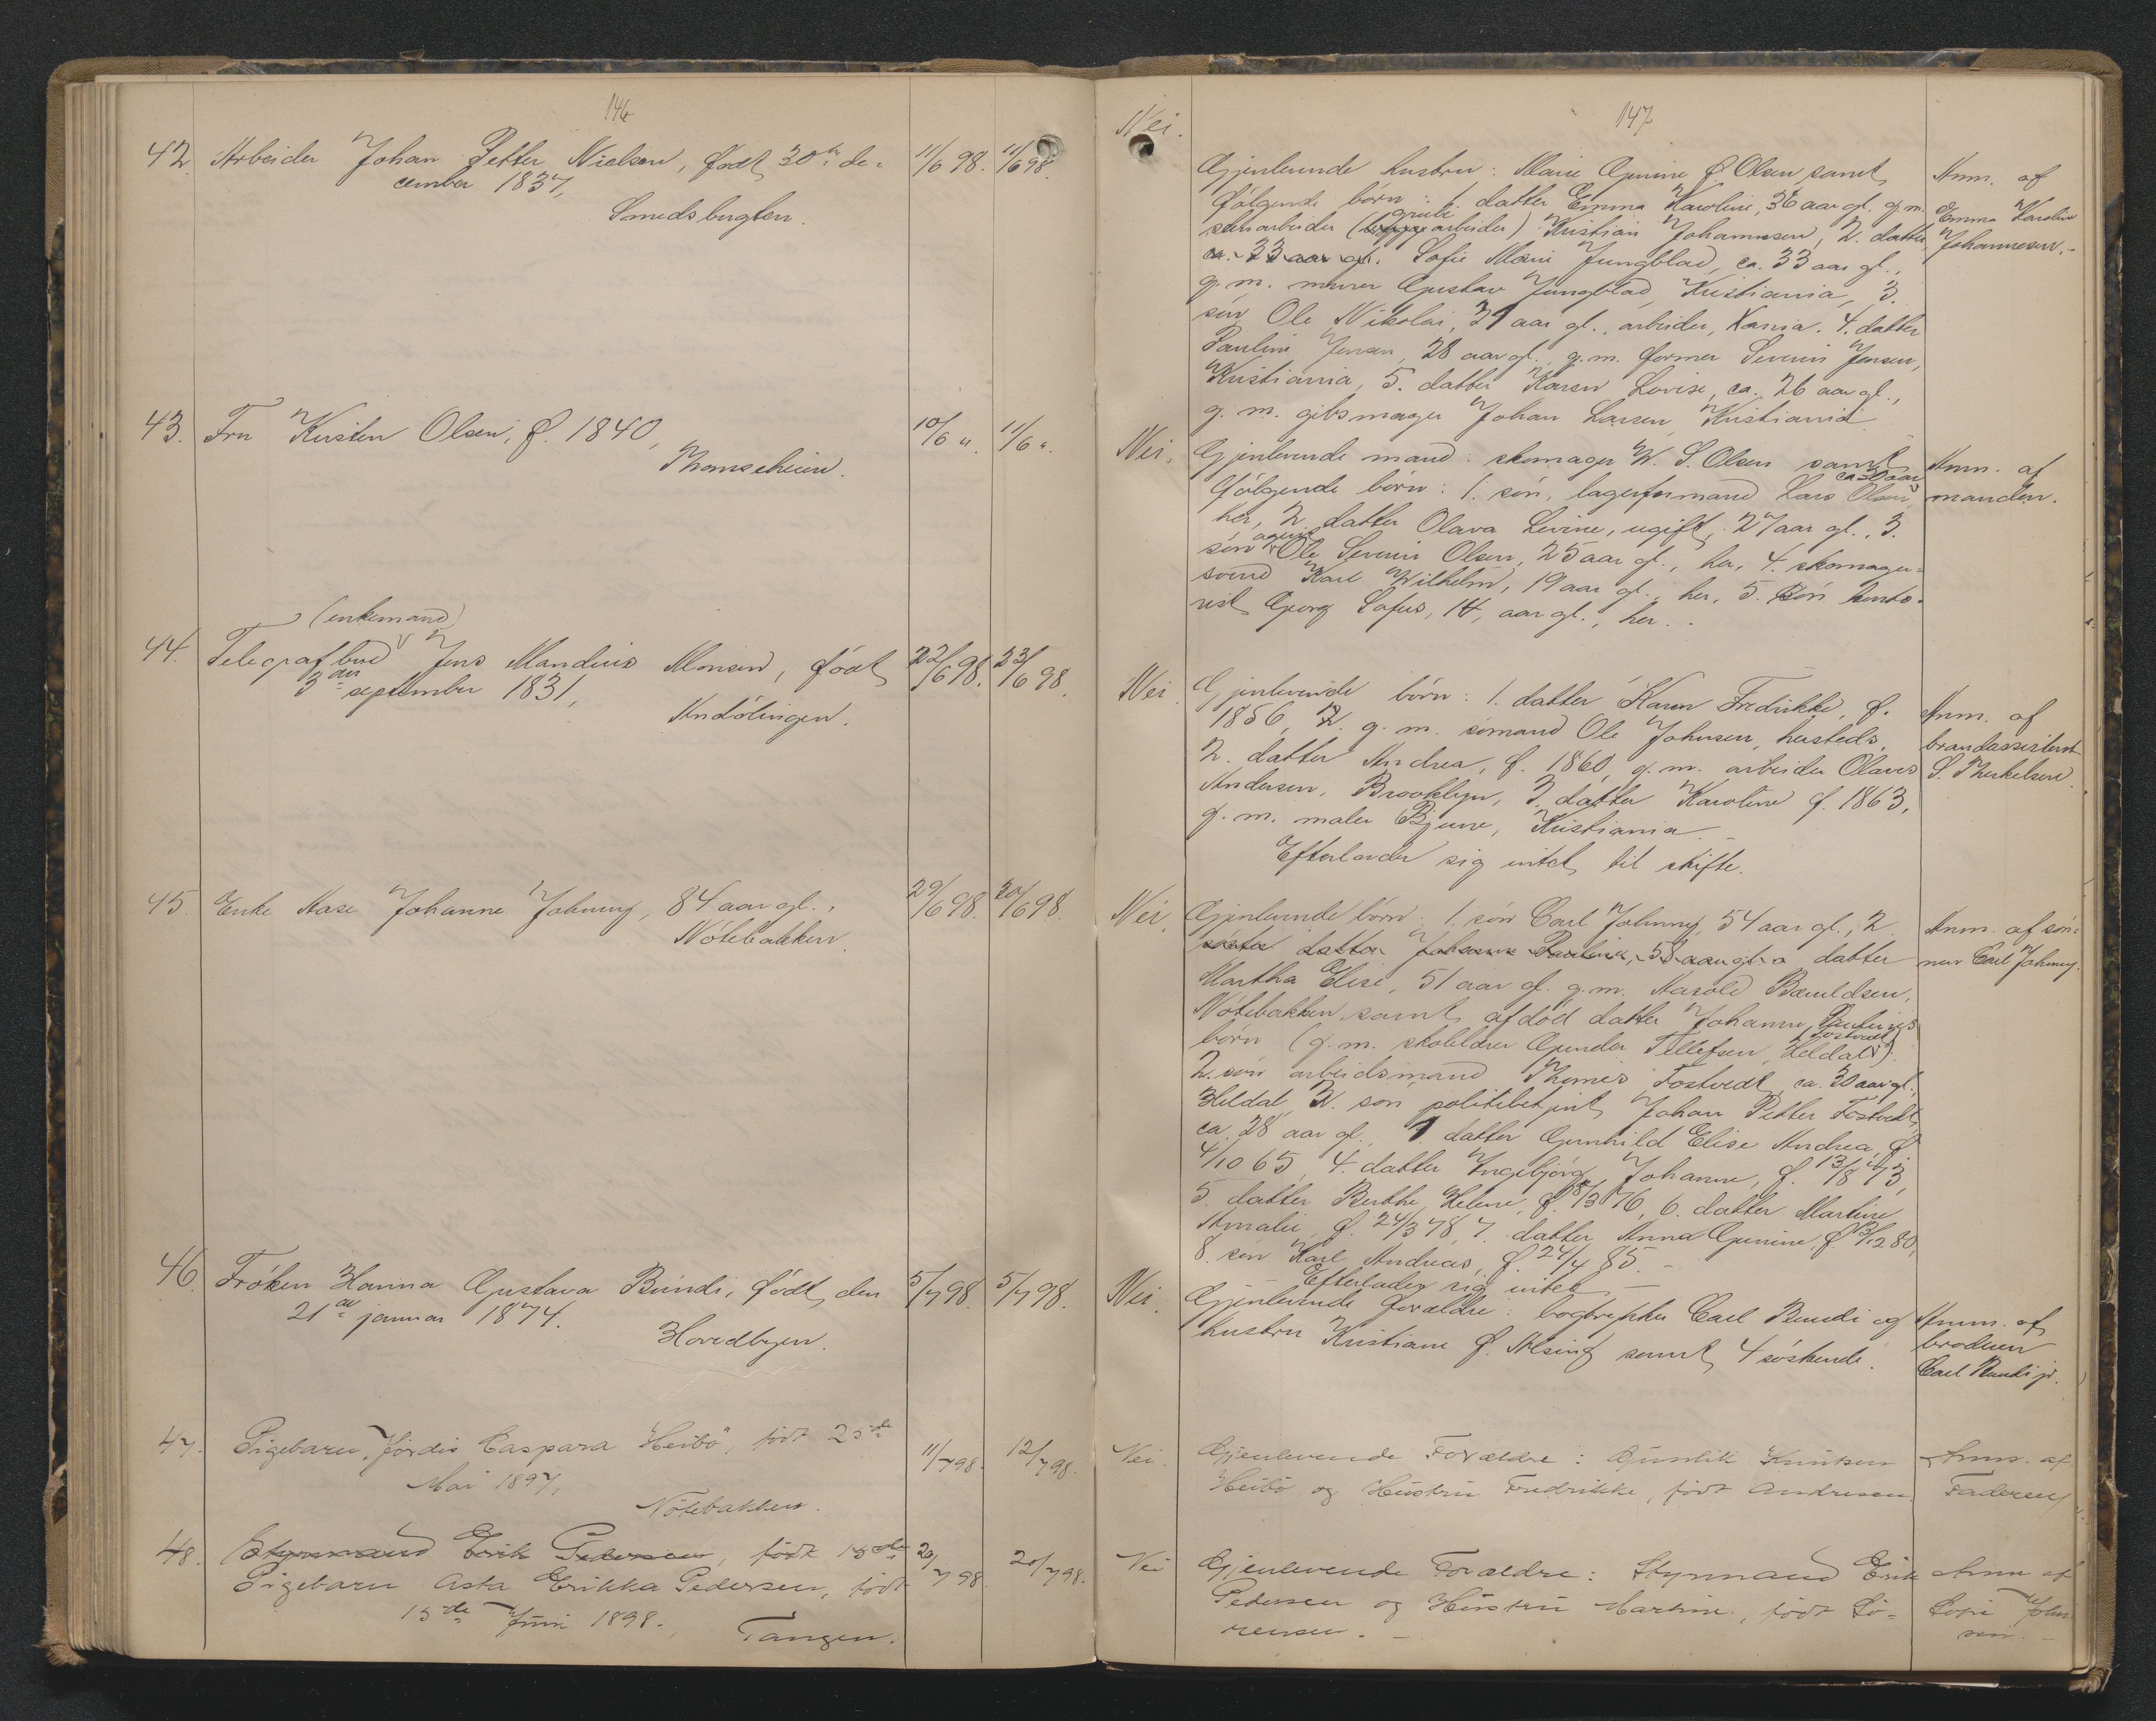 146
42. Arbeider Johan Petter Nielsen, född 30te de- 11/6 98. 11/6 98.
cember 1837,
Smedsbugten.
43. Fru Kirsten Olsen, f. 1840, 10/6 „ 11/6 „
Thomseheien.
(enkemand)
44. Telegrafbud Jens Mandius Monsen, født 22/6 98. 23/6 98.
3die september 1831,
Kndölingen.
45. Enke Aase Johanne Johnny, 84 aar gl., 29/6 98. 30/6 98.
Nötebakken.
46. Fröken Hanna Gustava Bundi, født den 5/7 98. 5/7 98.
21de januar 1874.
Hovedbyen.
47. Pigebarn Hjördis Caspara Heibö, født 25de 11/7 98. 12/7 98.
Mai 1897,
Nötebakken.
48. Styrmand Erik Pedersen, født 15de 20/7 98. 20/7 98.
Pigebarn Asta Erikka Pedersen, født
15de Juni 1898.
Tangen.
147
Nei.
Gjenlevende hustru: Maren Gurine f. Olsen samt Anm. af
følgende børn: 1. datter Emma Karoline, 36 aar gl. g. m. Emma Karoline
grube
arbeider) Kristian Johannesen, 2. datter Johannesen.
ca. 33 aar gl. Sofie Marie Jungblad, ca. 33 aar gl.,
g. m. murer Gustav Jungblad, Kristiania, 3.
søn Ole Nikolai, 31 aar gl., arbeider, Kania. 4. datter
Pauline Jensen, 28 aar gl., g. m. former Severin Jensen,
Kristiania, 5. datter Karen Lovise, ca. 26 aar gl.,
g. m. gibsmager Johan Larsen, Kristiania
Nei. Gjenlevende mand: skomager W. S. Olsen samt Anm. af
ca 30 aar
følgende børn: 1. søn, lagerformand Lars Olsen, manden.
her, 2. datter Olava Levine, ugift, 27 aar gl., 3.
agent
søn Ole Severin Olsen, 25 aar gl., her, 4. skomager-
svend Karl Wilhelm, 19 aar gl., her, 5. søn konto-
rist Georg Sofus, 14, aar gl., her.
Nei. Gjenlevende børn: 1. datter Karen Fredrikke, f. Anm. af
1856, g. m. sømand Ole Johnsen, hersteds, brandassistent
2. datter Andrea, f. 1860, g. m. arbeider Olaves S. Therkelsen.
Andersen, Brooklyn, 3. datter Karoline f. 1863,
g. m. maler Bjune, Kristiania
Efterlader sig intet til skifte.
Nei. Gjenlevende børn: 1. søn Carl Johnny, 54 aar gl., 2. Anm. af søn-
datter Johanne Pauline, 58 aar gl. datter nen Carl Johnny.
Martha Elise, 51 aar gl. g. m. Harald Bauldsen,
Nötebakken samt afdöd datter Johanne Paulines
Fostvedt
børn (g. m. skolelærer Gunder Tellefsen, Heldal).
2. søn arbeidsmand Thomes Fostvedt, ca. 30 aar gl.,
Heldal, 2. søn politibetjent Johan Petter Fostvedt,
ca. 28 aar gl., datter Gunhild Elise Andrea, f.
4/10 65, 4. datter Ingebjörg Johanne, f. 13/8 73,
5. datter Berthe Helene, f. 8/3 76, 6. datter Martine
Amalie f. 24/3 78, 7. datter Anna Gurine f. 13/12 80,
8. søn Karl Andreas, f. 24/4 85.
Efterlader sig intet
Nei. Gjenlevende forældre: bogtrykker Carl Bundi og Anm. af
hustru Kristiane f. Alsing samt 4 søskende. broderen
Carl Bundi jr.
Nei. Gjenlevende Forældre: Gunlik Knutsen Anm. af
Heibö og Hustru Fredrikke, født Andresen Faderen
Nei Gjenlevende Forældre: Styrmand Erik Anm af
Pedersen og Hustru Martine, født Sö- Sofie John-
rensen. sen.